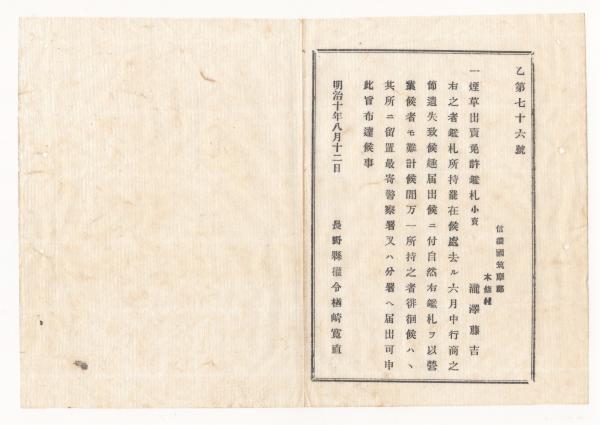 乙第七十六號
信濃國筑摩郡
木曽村
瀧澤藤吉
一煙草出賣免許鑑札小賣
右之者鑑札所持罷在候處去ル六月中行商之
節遺失致候趣届出候ニ付自然右鑑札ヲ以營
業候者モ難計候間万一所持之者徘徊候ハヽ
其所ニ留置最寄警察署又ハ分署ヘ届出可申
此旨布達候事
明治十年八月十二日
長野縣權令楢崎寛直